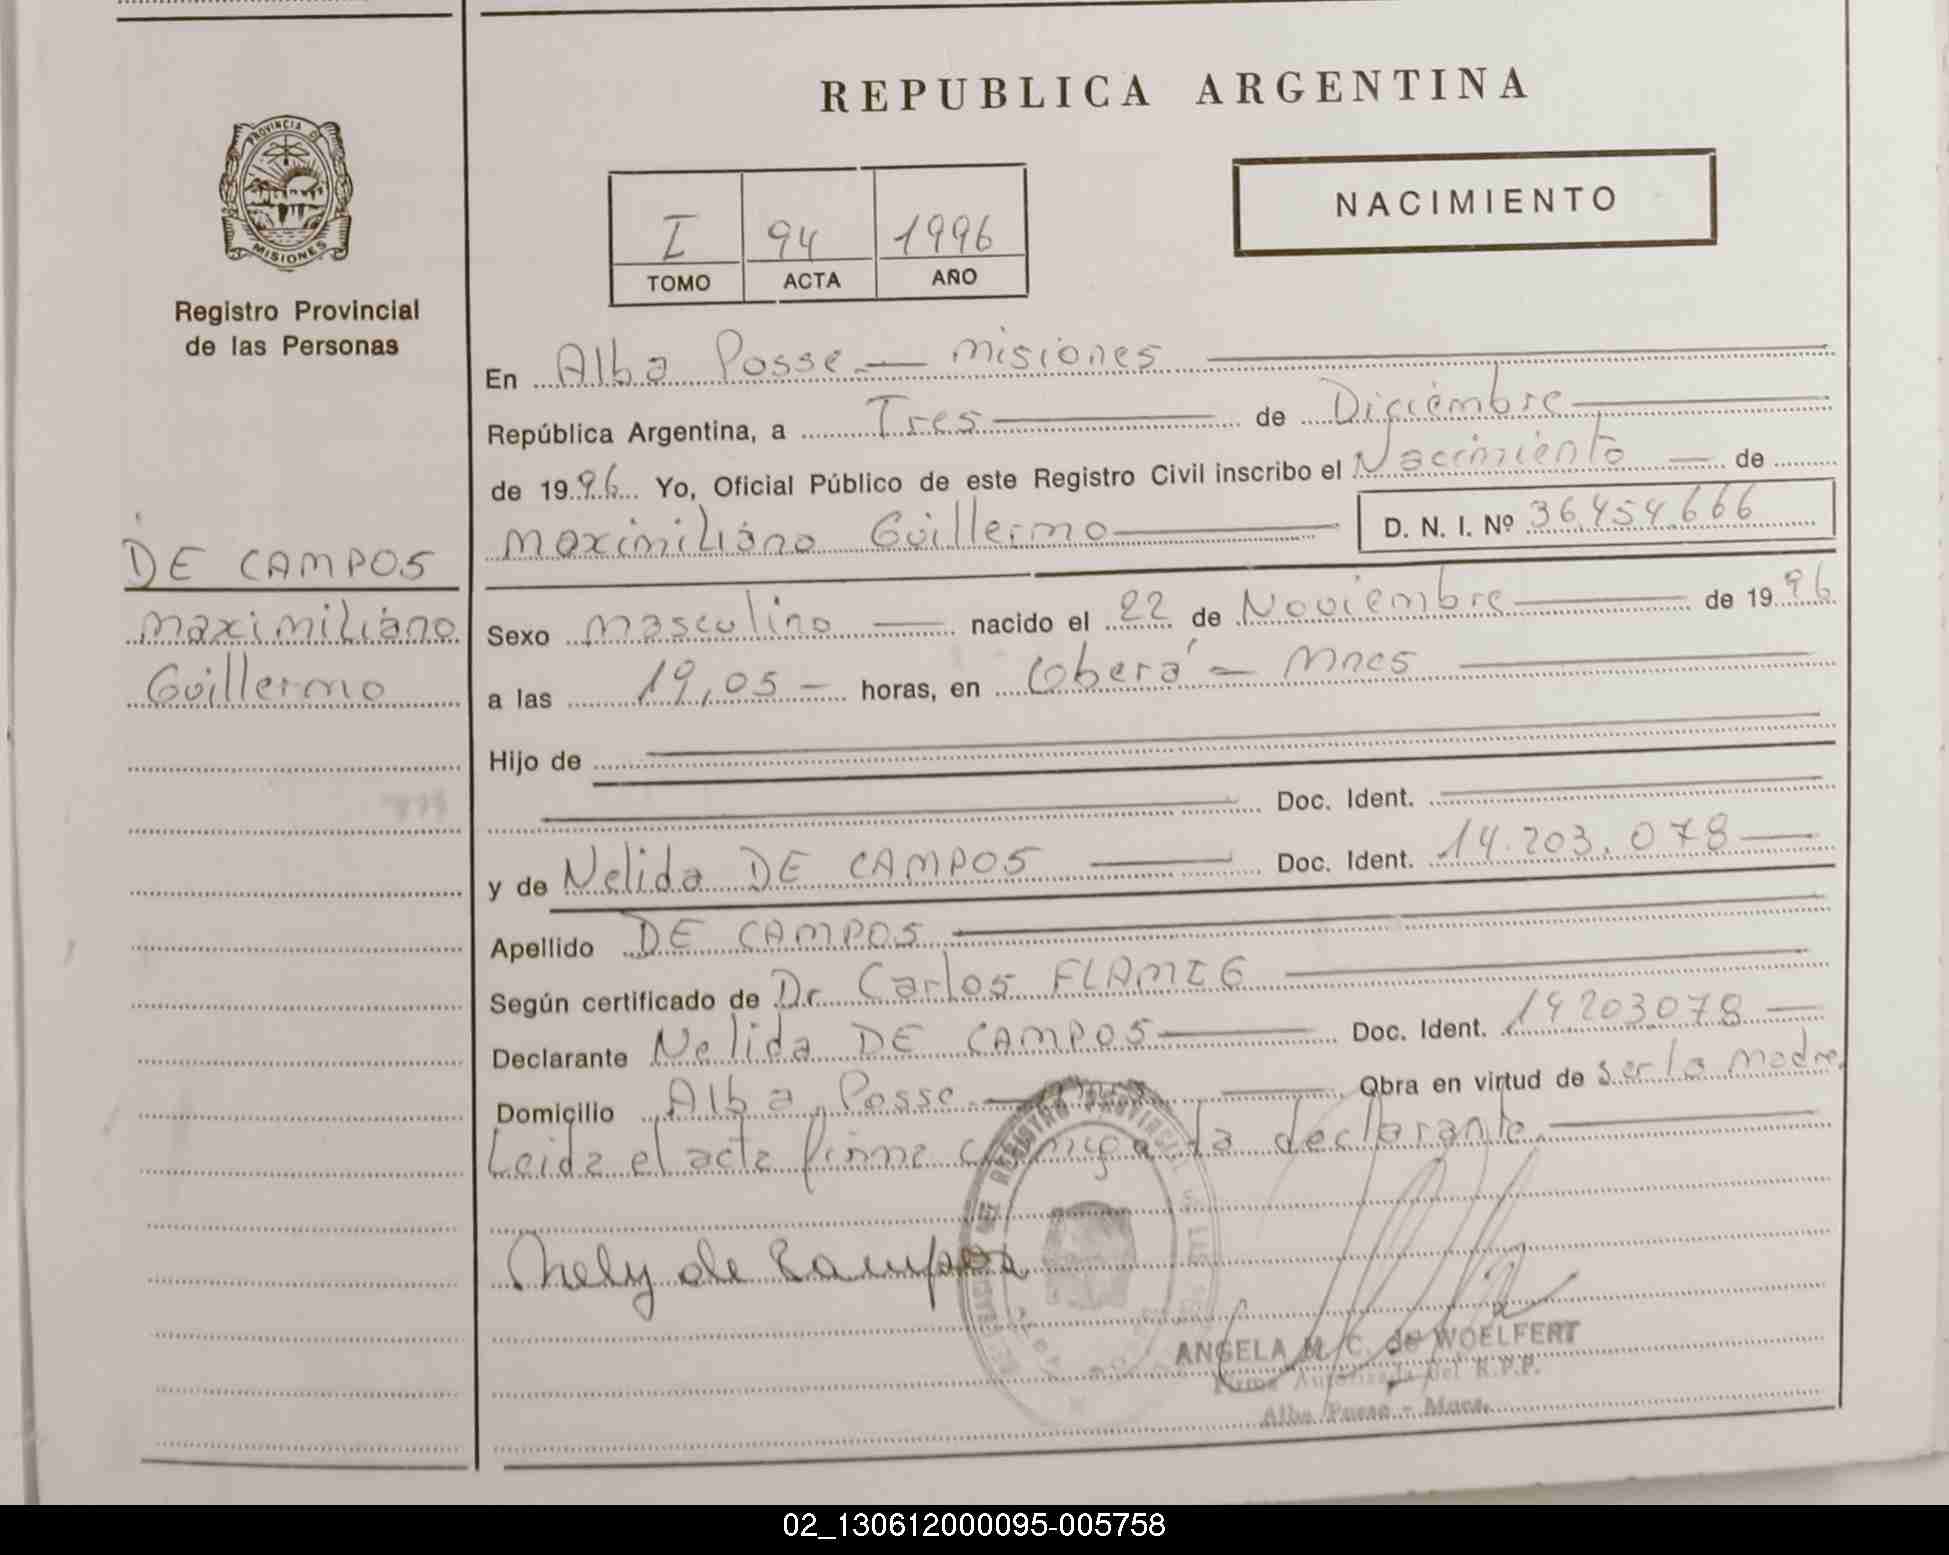 REPUBLICA ARGENTINA
PROVINCIA D
MISIONES
Registro Provincial
de las Personas
I 94 1996
TOMO ACTA AÑO
NACIMIENTO
DE CAMPOS
Maximiliano
Guillermo
En Alba Posse - Misiones
República Argentina, a Tres de Diciembre
de 1996 Yo, Oficial Público de este Registro Civil inscribo el Nacimiento de
Maximiliano Guillermo D. N. I. Nº 36.454.666
Sexo Masculino nacido el 22 de Noviembre de 1996
a las 19,05 horas, en Oberá - Mnes
Hijo de
Doc. Ident.
y de Nelida DE CAMPOS Doc. Ident. 14.203.078
Apellido DE CAMPOS
Según certificado de Dr Carlos FLAMIG
Declarante Nelida DE CAMPOS Doc. Ident. 14203078
Domicilio Alba Posse - Obra en virtud de ser la madre.
Leida el acta firma conmigo la declarante.
Nely de Campos
REGISTRO PROVINCIAL
ANGELA M. C. de WOELFERT
Firma Autorizada del R.P.P.
Alba Posse - Mnes.
02_130612000095-005758